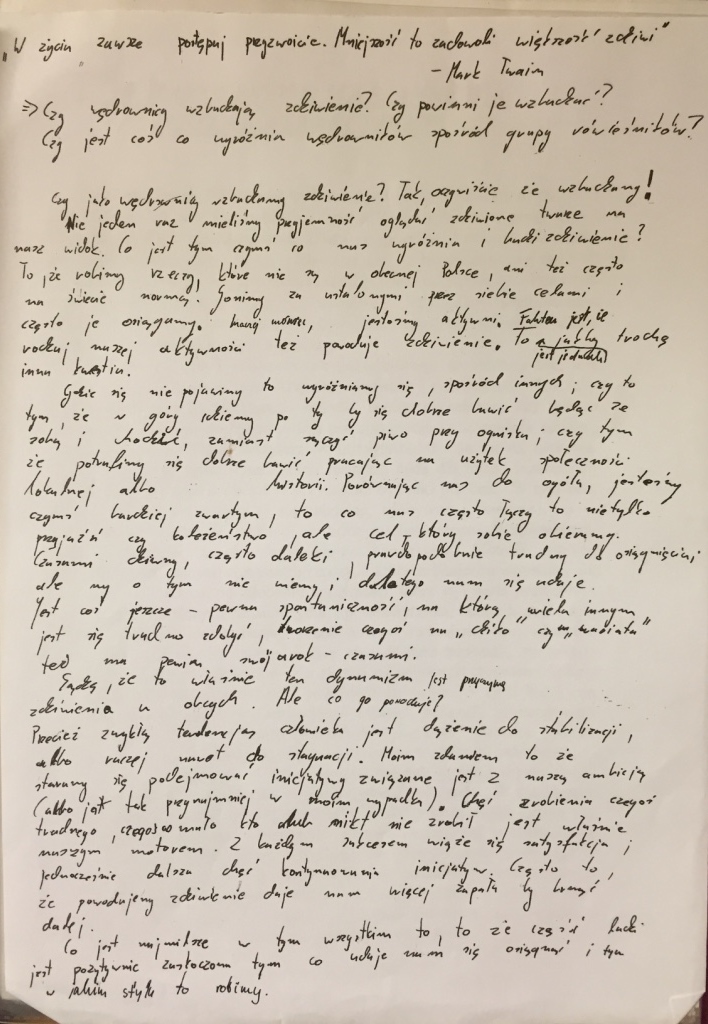 "W życiu zawsze postępuj przyzwoicie. Mniejszość to zadowoli większość zdziwi"
– Mark Twain
⇒ Czy wędrownicy wzbudzają zdziwienie? Czy powinni je wzbudzać?
Czy jest coś co wyróżnia wędrowników spośród grupy rówieśników?
Czy jako wędrownicy wzbudzamy zdziwienie? Tak, oczywiście że wzbudzamy!
Nie jeden raz mieliśmy przyjemność oglądać zdziwione twarze na
nasz widok. Co jest tym czymś co nas wyróżnia i budzi zdziwienie?
To, że robimy rzeczy, które nie są w obecnej Polsce, ani też często
na świecie normą. Gonimy za ustalonymi przez siebie celami i
często je osiągamy. Inaczej mówiąc, jesteśmy aktywni. Faktem jest, że
rodzaj naszej aktywności też powoduje zdziwienie. To jest jednak trochę
inna kwestia.
Gdzie się nie pojawimy to wyróżniamy się, spośród innych; czy to
tym, że w góry idziemy po to by się dobrze bawić będąc ze
sobą i chodzić, zamiast sączyć piwo przy ognisku; czy tym
że potrafimy się dobrze bawić pracując na użytek społeczności
lokalnej albo historii. Porównując nas do ogółu, jesteśmy
czymś bardziej zwartym, to co nas często łączy to nietylko
przyjaźń czy koleżeństwo, ale cel – który sobie obieramy.
Czasami dziwny, często daleki, prawdopodobnie trudny do osiągnięcia,
ale my o tym nie wiemy i dlatego nam się udaje.
Jest coś jeszcze – pewna spontaniczność, na którą wielu innym
jest się trudno zdobyć, tworzenie czegoś na "dziko" czy "wariata"
też ma pewien swój urok – czasami.
Sądzę, że to właśnie ten dynamizm jest przyczyną
zdziwienia u obcych. Ale co go powoduje?
Przecież zwykłą tendencją człowieka jest dążenie do stabilizacji,
albo raczej nawet do stagnacji. Moim zdaniem to że
staramy się podejmować inicjatywy związane jest z naszą ambicją
(albo jest tak przynajmniej w moim wypadku). Chęć zrobienia czegoś
trudnego, czegoś co mało kto albo nikt nie zrobił jest właśnie
naszym motorem. Z każdym sukcesem wiąże się satysfakcja i
jednocześnie dalsza chęć kontynuowania inicjatyw. Często to,
że powodujemy zdziwienie daje nam więcej zapału by brnąć
dalej.
Co jest najmilsze w tym wszystkim to, to że część ludzi
jest pozytywnie zaskoczona tym co udaje nam się osiągnąć i tym
w jakim stylu to robimy.